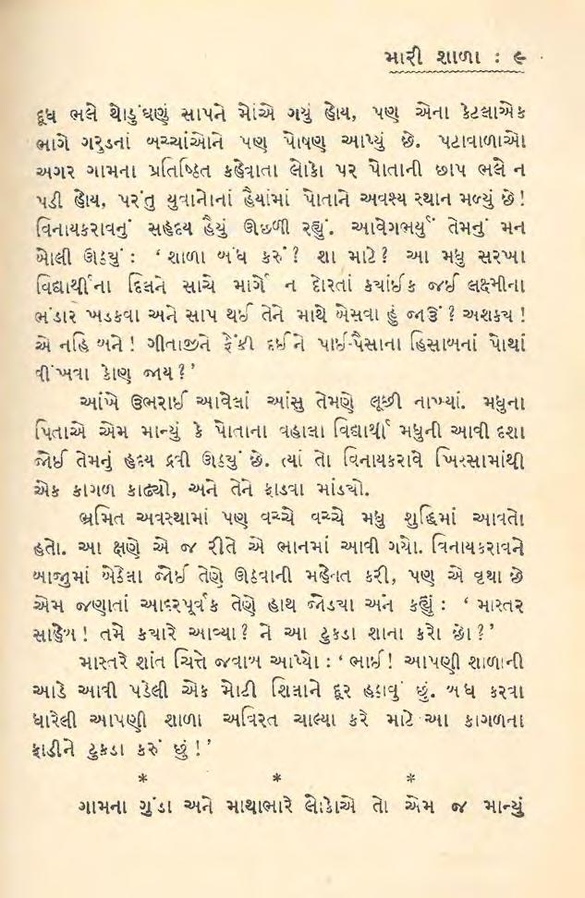 મારી શાળા : ૯
દૂધ ભલે થોડુંઘણું સાપને મોંએ ગયું હોય, પણ એના કેટલાએક
ભાગે ગરુડનાં બચ્ચાંઓને પણ પોષણ આપ્યું છે. પટાવાળાઓ
અગર ગામના પ્રતિષ્ઠિત કહેવાતા લોકો પર પોતાની છાપ ભલે ન
પડી હોય, પરંતુ યુવાનોનાં હૈયાંમાં પોતાને અવશ્ય સ્થાન મળ્યું છે!
વિનાયકરાવનું સહૃદય હૈયું ઊછળી રહ્યું. આવેગભર્યું તેમનું મન
બોલી ઊઠયું : ‘ શાળા બંધ કરું? શા માટે? આ મધુ સરખા
વિદ્યાર્થીના દિલને સાચે માર્ગે ન દોરતાં કયાંઈક જઈ લક્ષ્મીના
ભંડાર ખડકવા અને સાપ થઈ તેને માથે બેસવા હું જાઉં? અશકય!
એ નહિ બને! ગીતાજીને ફેંકી દઈને પાઈ-પૈસાના હિસાબનાં પોથાં
વીંખવા કોણ જાય?’
આંખે ઉભરાઈ આવેલાં આંસુ તેમણે લૂછી નાખ્યાં. મધુના
પિતાએ એમ માન્યું કે પોતાના વહાલા વિદ્યાર્થી મધુની આવી દશા
જોઈ તેમનું હૃદય દ્રવી ઊઠયું છે. ત્યાં તો વિનાયકરાવે ખિસ્સામાંથી
એક કાગળ કાઢ્યો, અને તેને ફાડવા માંડયો.
ભ્રમિત અવસ્થામાં પણ વચ્ચે વચ્ચે મધુ શુદ્ધિમાં આવતો
હતો. આ ક્ષણે એ જ રીતે એ ભાનમાં આવી ગયો. વિનાયકરાવને
બાજુમાં બેઠેલા જોઈ તેણે ઊઠવાની મહેનત કરી, પણ એ વૃથા છે
એમ જણાતાં આદરપૂર્વક તેણે હાથ જોડયા અને કહ્યું : ‘ માસ્તર
સાહેબ! તમે કયારે આવ્યા? ને આ ટુકડા શાના કરો છો?’
માસ્તરે શાંત ચિત્તે જવાબ આપ્યો : ‘ ભાઈ! આપણી શાળાની
આડે આવી પડેલી એક મોટી શિલાને દૂર હઠાવું છું. બંધ કરવા
ધારેલી આપણી શાળા અવિરત ચાલ્યા કરે માટે આ કાગળના
ફાડીને ટુકડા કરું છું!’
* * *
ગામના ગુંડા અને માથાભારે લોકોએ તો એમ જ માન્યું